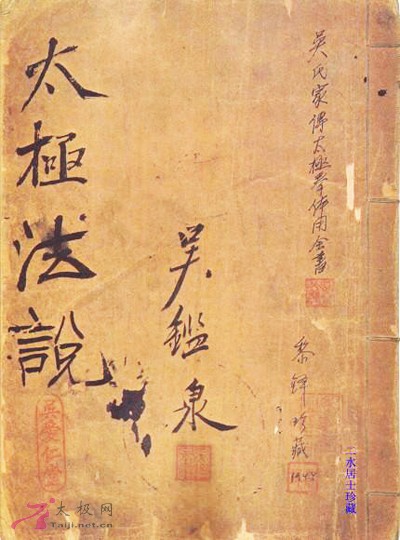 吳氏家傳太極拳体用全書
黎鐸珍藏
1948
二水居士珍藏
吳鑑泉
太極法說
太极网
Taiji.net.cn